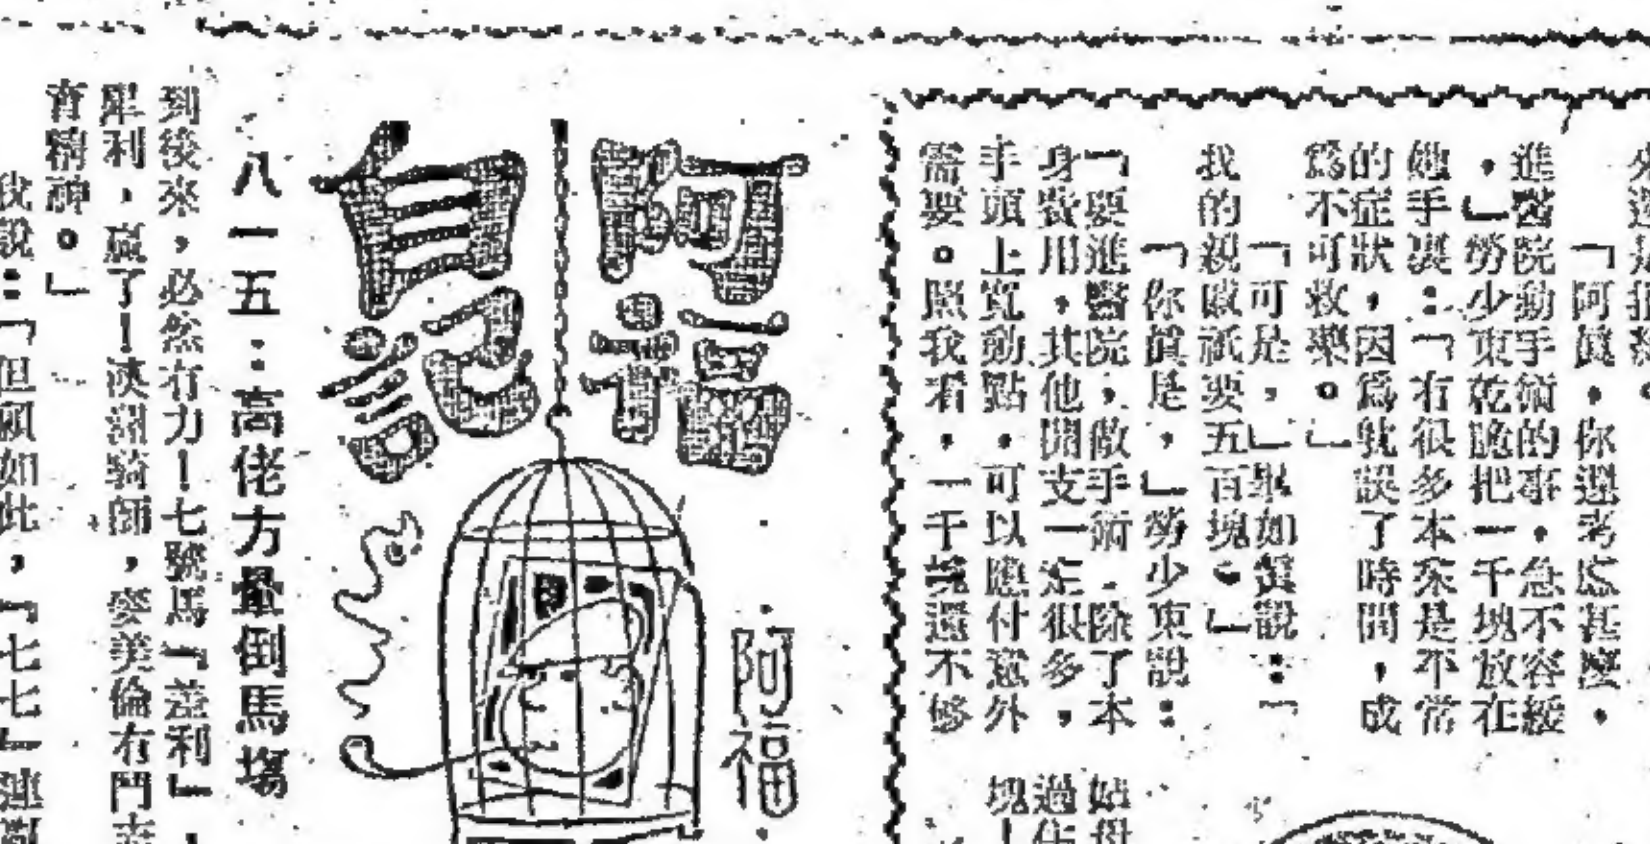 「阿眞，你還考慮甚麼，
進醫院動手術的事，急不容緩
，」勞少東乾脆把一千塊放在
她手裏：「有很多本來是不常
的症狀，因爲躭誤了時間，成
爲不可救藥。」
「可是，」畢如賢說：「
我的親戚祇要五百塊。」
「你眞是，」勞少東說：
「要進醫院，做手術，除了本
身費用，其他開支一定很多，
手頭上寬動點，可以應付意外
需要。照我看，一千塊還不够
姑母
塊上
阿福
自記
阿福
八一五：高佬方暈倒馬塲
到後來，必然有力！七號馬「差利」，
犀利，贏了！澳洲騎師，麥美倫有鬥志
育精神。」
我說：「但願如此，「七七」連